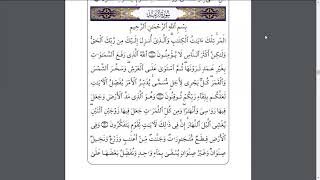 سُورَةُ الرَّعْدِ
بِسْمِ ٱللَّهِ ٱلرَّحْمَٰنِ ٱلرَّحِيمِ
الٓمٓر تِلْكَ ءَايَٰتُ ٱلْكِتَٰبِ وَٱلَّذِىٓ أُنزِلَ إِلَيْكَ مِن رَّبِّكَ ٱلْحَقُّ
وَلَٰكِنَّ أَكْثَرَ ٱلنَّاسِ لَا يُؤْمِنُونَ ١ ٱللَّهُ ٱلَّذِى رَفَعَ ٱلسَّمَٰوَٰتِ
بِغَيْرِ عَمَدٍ تَرَوْنَهَا ثُمَّ ٱسْتَوَىٰ عَلَى ٱلْعَرْشِ وَسَخَّرَ ٱلشَّمْسَ
وَٱلْقَمَرَ كُلٌّ يَجْرِى لِأَجَلٍ مُّسَمًّى يُدَبِّرُ ٱلْأَمْرَ يُفَصِّلُ ٱلْءَايَٰتِ
لَعَلَّكُم بِلِقَآءِ رَبِّكُمْ تُوقِنُونَ ٢ وَهُوَ ٱلَّذِى مَدَّ ٱلْأَرْضَ وَجَعَلَ
فِيهَا رَوَٰسِىَ وَأَنْهَٰرًا وَمِن كُلِّ ٱلثَّمَرَٰتِ جَعَلَ فِيهَا زَوْجَيْنِ ٱثْنَيْنِ
يُغْشِى ٱلَّيْلَ ٱلنَّهَارَ إِنَّ فِى ذَٰلِكَ لَءَايَٰتٍ لِّقَوْمٍ يَتَفَكَّرُونَ ٣ وَفِى
ٱلْأَرْضِ قِطَعٌ مُّتَجَٰوِرَٰتٌ وَجَنَّٰتٌ مِّنْ أَعْنَٰبٍ وَزَرْعٌ وَنَخِيلٌ
صِنْوَانٌ وَغَيْرُ صِنْوَانٍ يُسْقَىٰ بِمَآءٍ وَٰحِدٍ وَنُفَضِّلُ بَعْضَهَا عَلَىٰ